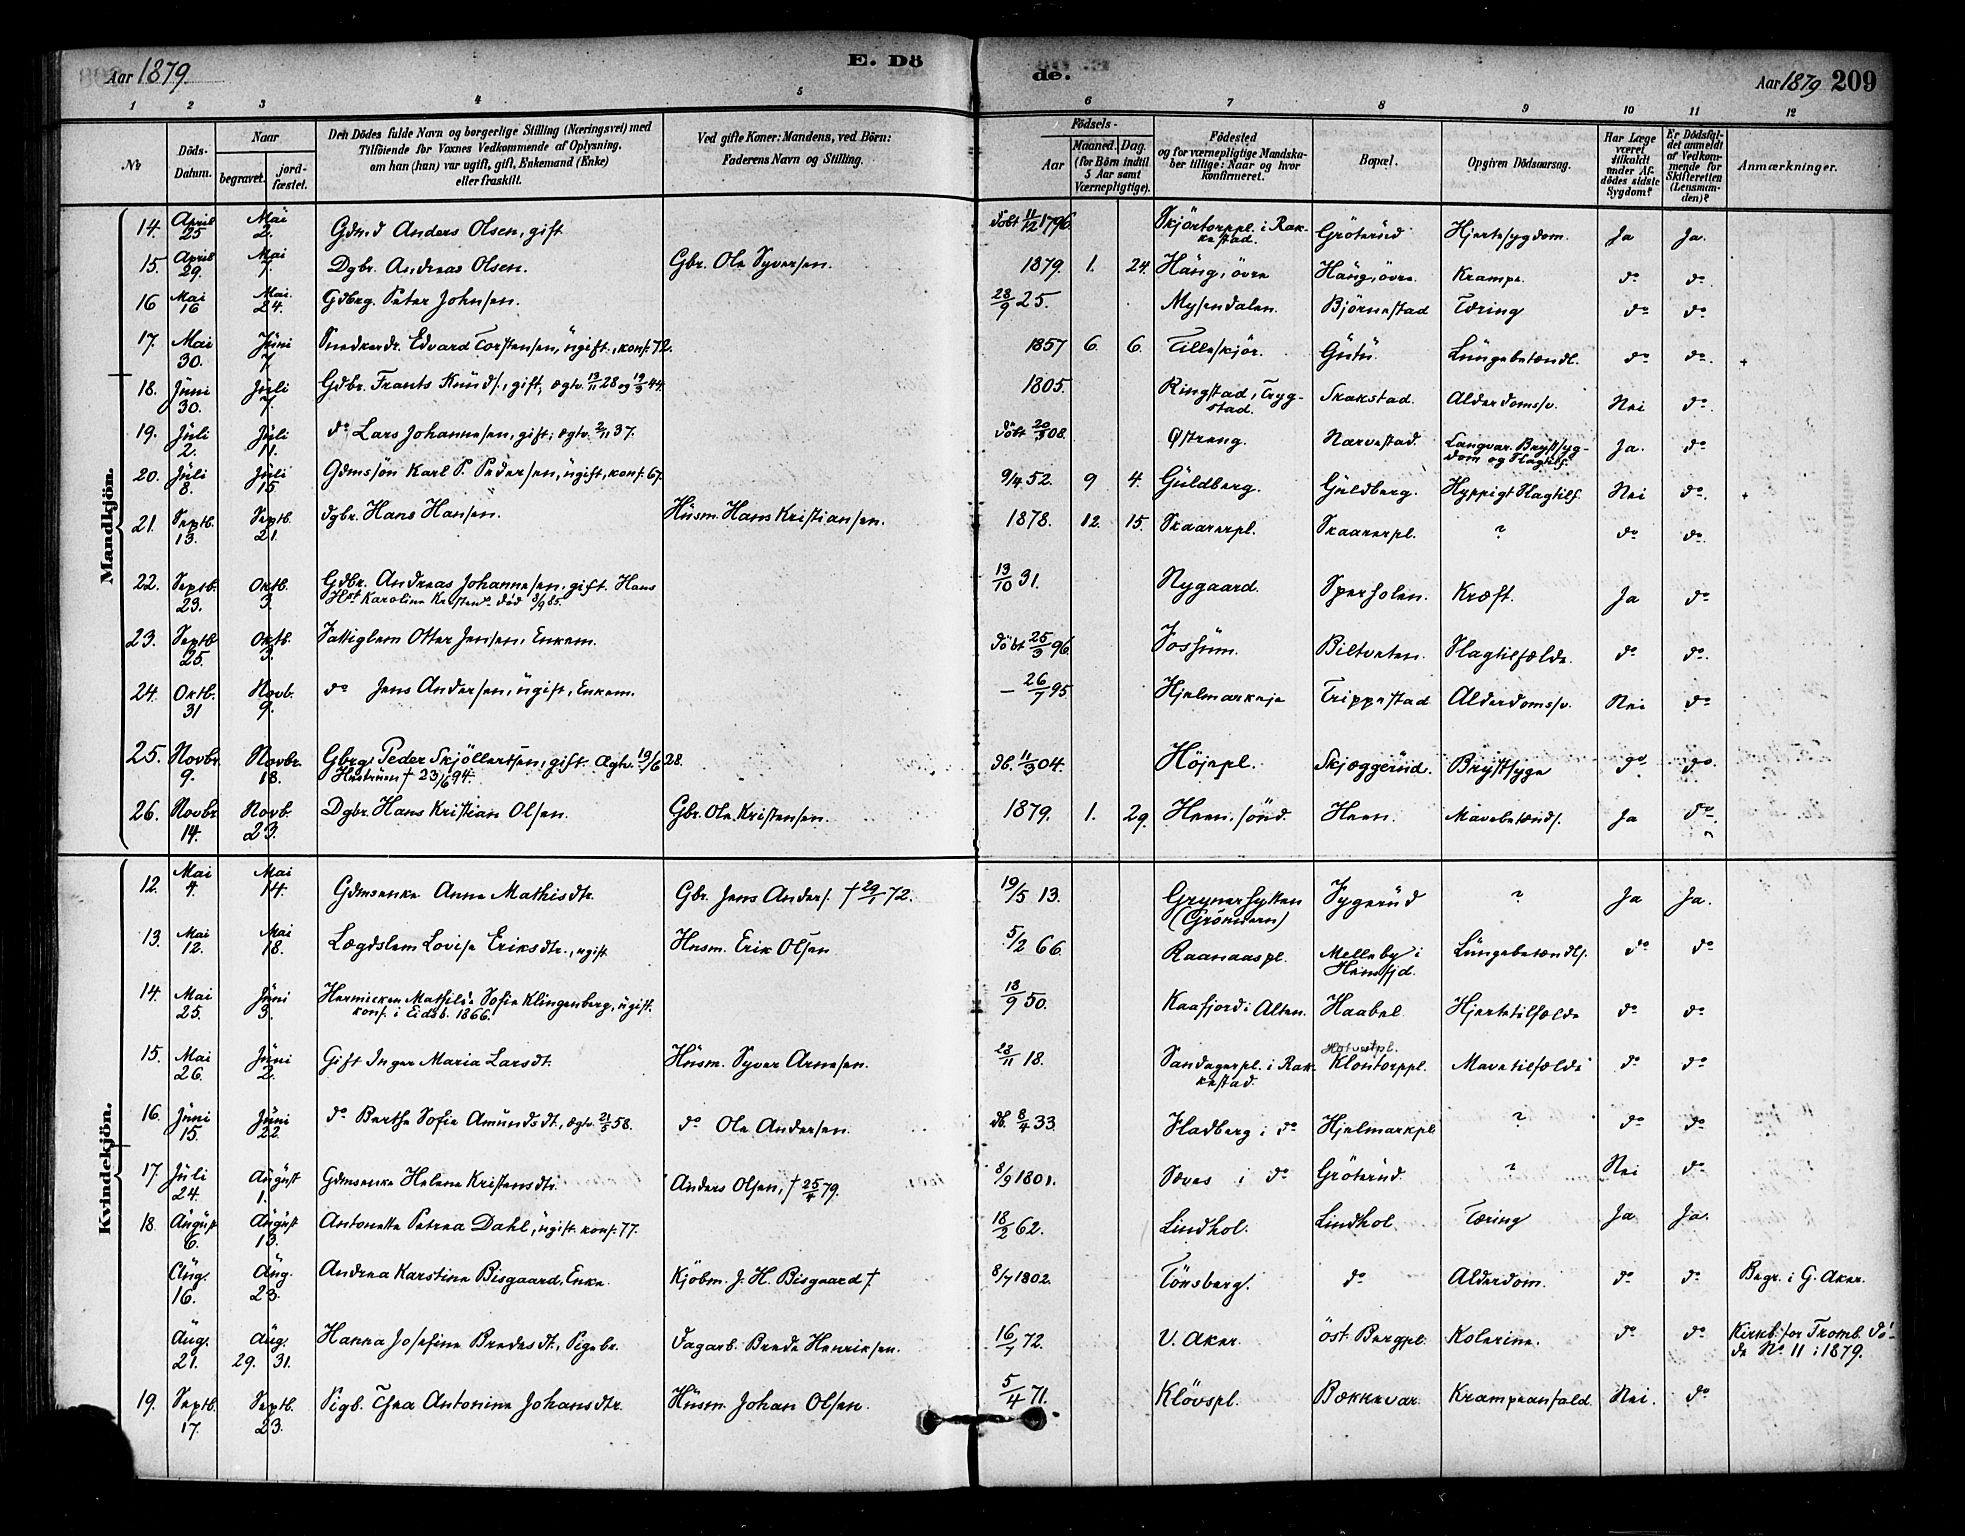 Aar 1879.
E. Dö
de.
Aar 1879 209
1 2 3 4 5 6 7 8 9 10 11 12
No
Döds-Datum.
Naar
begravet.
jordfæstet.
Den Dödes fulde Navn og borgerlige Stilling (Næringsvei) med
Tilföiende for Voxnes Vedkommende af Oplysning,
om han (hun) var ugift, gift, Enkemand (Enke)
eller fraskilt.
Ved gifte Koner: Mandens, ved Börn:
Faderens Navn og Stilling.
Födsels-
Aar
Maaned. Dag.
(for Börn indtil
5 Aar samt
Værnepligtige).
Födested
og for værnepligtige Mandskaber tillige: Naar og hvor
konfirmeret.
Bopæl.
Opgiven Dödsaarsag.
Har Læge
været
tilkaldt
under Afdödes sidste
Sygdom?
Er Dödsfaldet anmeldt
af Vedkommende for
Skifteretten
(Lensmanden)?
Anmærkninger.
Mandkjön.
14. April 25 Mai 2. Gdmd Anders Olsen, gift döbt 11/12 1796. Skjörtorppl. i Rakkestad. Gröterüd Hjertesygdom. Ja Ja.
15. April 29. Mai 7. Dgbr. Andreas Olsen. Gbr. Ole Syversen. 1879. 1. 24. Häng, övre Häng, övre Krampe. do do
16 Mai 16 Mai. 24. Gdbrg. Peter Johnsen. 23/9 25. Mysendalen. Björnestad Tæring do do
17. Mai 30. Jüni 7. Snedkerdr. Edvard Torstensen, ügift, konf. 72. 1857 6. 6. Tilleskjör. Gütü. Lüngebetændl. do do. +
18. Jüni 30. Jüli 7. Gdbr. Frants Knüds., gift, ægtv. 13/11 28 og 19/3 44. 1805. Ringstad, Trygstad. Skakstad. Alderdomssv. Nei do.
19. Jüli 2. Jüli 11. do Lars Johannesen, gift, ægtv. 2/11 37. döbt 20/3 08. Østreng. Narvestad. Langvar. Brystsygdom og Slagtilf. Ja. do
20. Jüli 8. Jüli 15 Gdmssön Karl P. Pedersen, ügift, konf. 67. 9/4 52. 9 4. Güldberg. Güldberg. Hyppigt Slagtilf. Nei do. +
21. Septb. 13. Septb. 21. dgbr. Hans Hansen. Hüsm. Hans Kristiansen. 1878. 12. 15. Skaarerpl. Skaarerpl. ? do do.
22. Septb. 23. Oktb. 3. Gdbr. Andreas Johannesen, gift. Hans
Hst Karoline Kristensd. död 3/9 85. 13/10 31. Nygaard. Sperholen. Kræft. Ja do
23. Septb 25. Oktb. 3. Fattiglem Otter Jensen, Enkem. döbt 25/3 96. Fossüm. Biltveten. Slagtilfælde. do do.
24. Oktb. 31 Novb. 9. do Jens Andersen, ügift, Enkem. — 26/7 95. Hjelmarkeje Trippestad Alderdomssv. Nei do
25. Novbr. 9. Novbr. 18. Gbrg. Peder Skjöllertsen, gift. Ægtv. 19/6 28.
Hüstrüen † 23/6 94. db. 11/3 04. Höjepl. Skjæggerüd. Brystsyge do do.
26. Novbr 14. Novb. 23. Dgbr. Hans Kristian Olsen. Gbr. Ole Kristensen. 1879. 1. 29. Heen, sönd. Heen. Mavebetænds. Ja do.
Kvindekjön.
12. Mai 4. Mai 14. Gdmsenke Anne Mathisdtr. Gbr. Jens Anders. † 29/1 72. 19/5 13. Grynerhytten (Grönnern) Fygerüd ? Ja Ja.
13. Mai 12. Mai 18. Lægdslem Lovise Eriksdtr., ugift Husm. Erik Olsen 5/2 66. Raanaaspl. Melleby i Hemsjd. Lüngebetændls. do do
14. Mai 25. Jüni 3. Hermicken Mathilde Sofie Klingenberg, ügift.
konf. i Eidsb. 1866. 18/9 50. Kaafjord i Alten. Haabel. Hjertetilfælde do do
15. Mai 26. Jüni 2. Gift Inger Maria Larsdt. Hüsm. Syver Arnesen. 23/11 18. Sandagerpl. i Rakkestad. Klontorppl. Mavetilfælde do do
16. Jüni 15. Jüni 22. do Berthe Sofie Amündsdt., ægtv. 21/5 58. do Ole Andersen. db. 8/4 33. Fladberg i do Hjelmarkpl. ? do do
17 Jüli 24. Aügüst 1. Gdmsenke Helene Kristensdtr. Anders Olsen, † 25/4 79. 8/9 1801. Sæves i do Gröterüd. ? Nei do
18. Aügüst 6. Aügüst 13. Antonette Petrea Dahl, ügift konf. 77. 18/2 62. Lindhol. Lindhol. Tæring Ja Ja.
Aüg. 16. Aüg. 23. Andrea Karstine Bisgaard, Enke. Kjöbm. J. H. Bisgaard †. 8/7 1802. Tönsberg. do Alderdom. do do Begr. i G. Aker.
Aüg. 21. Aüg. 29. 31. Hanna Josefine Bredesdt., Pigebr. Dagarb. Brede Henriksen. 16/7 72. V. Aker öst. Bergpl. Kolerine. do do Kirkb. for Tromb. Döde No 11 i 1879.
19. Septb. 17. Septb. 23. Pigb. Thea Antonine Johansdtr. Hüsm. Johan Olsen. 5/4 71. Klövspl. Bækkevar. Krampeanfald. Nei. do